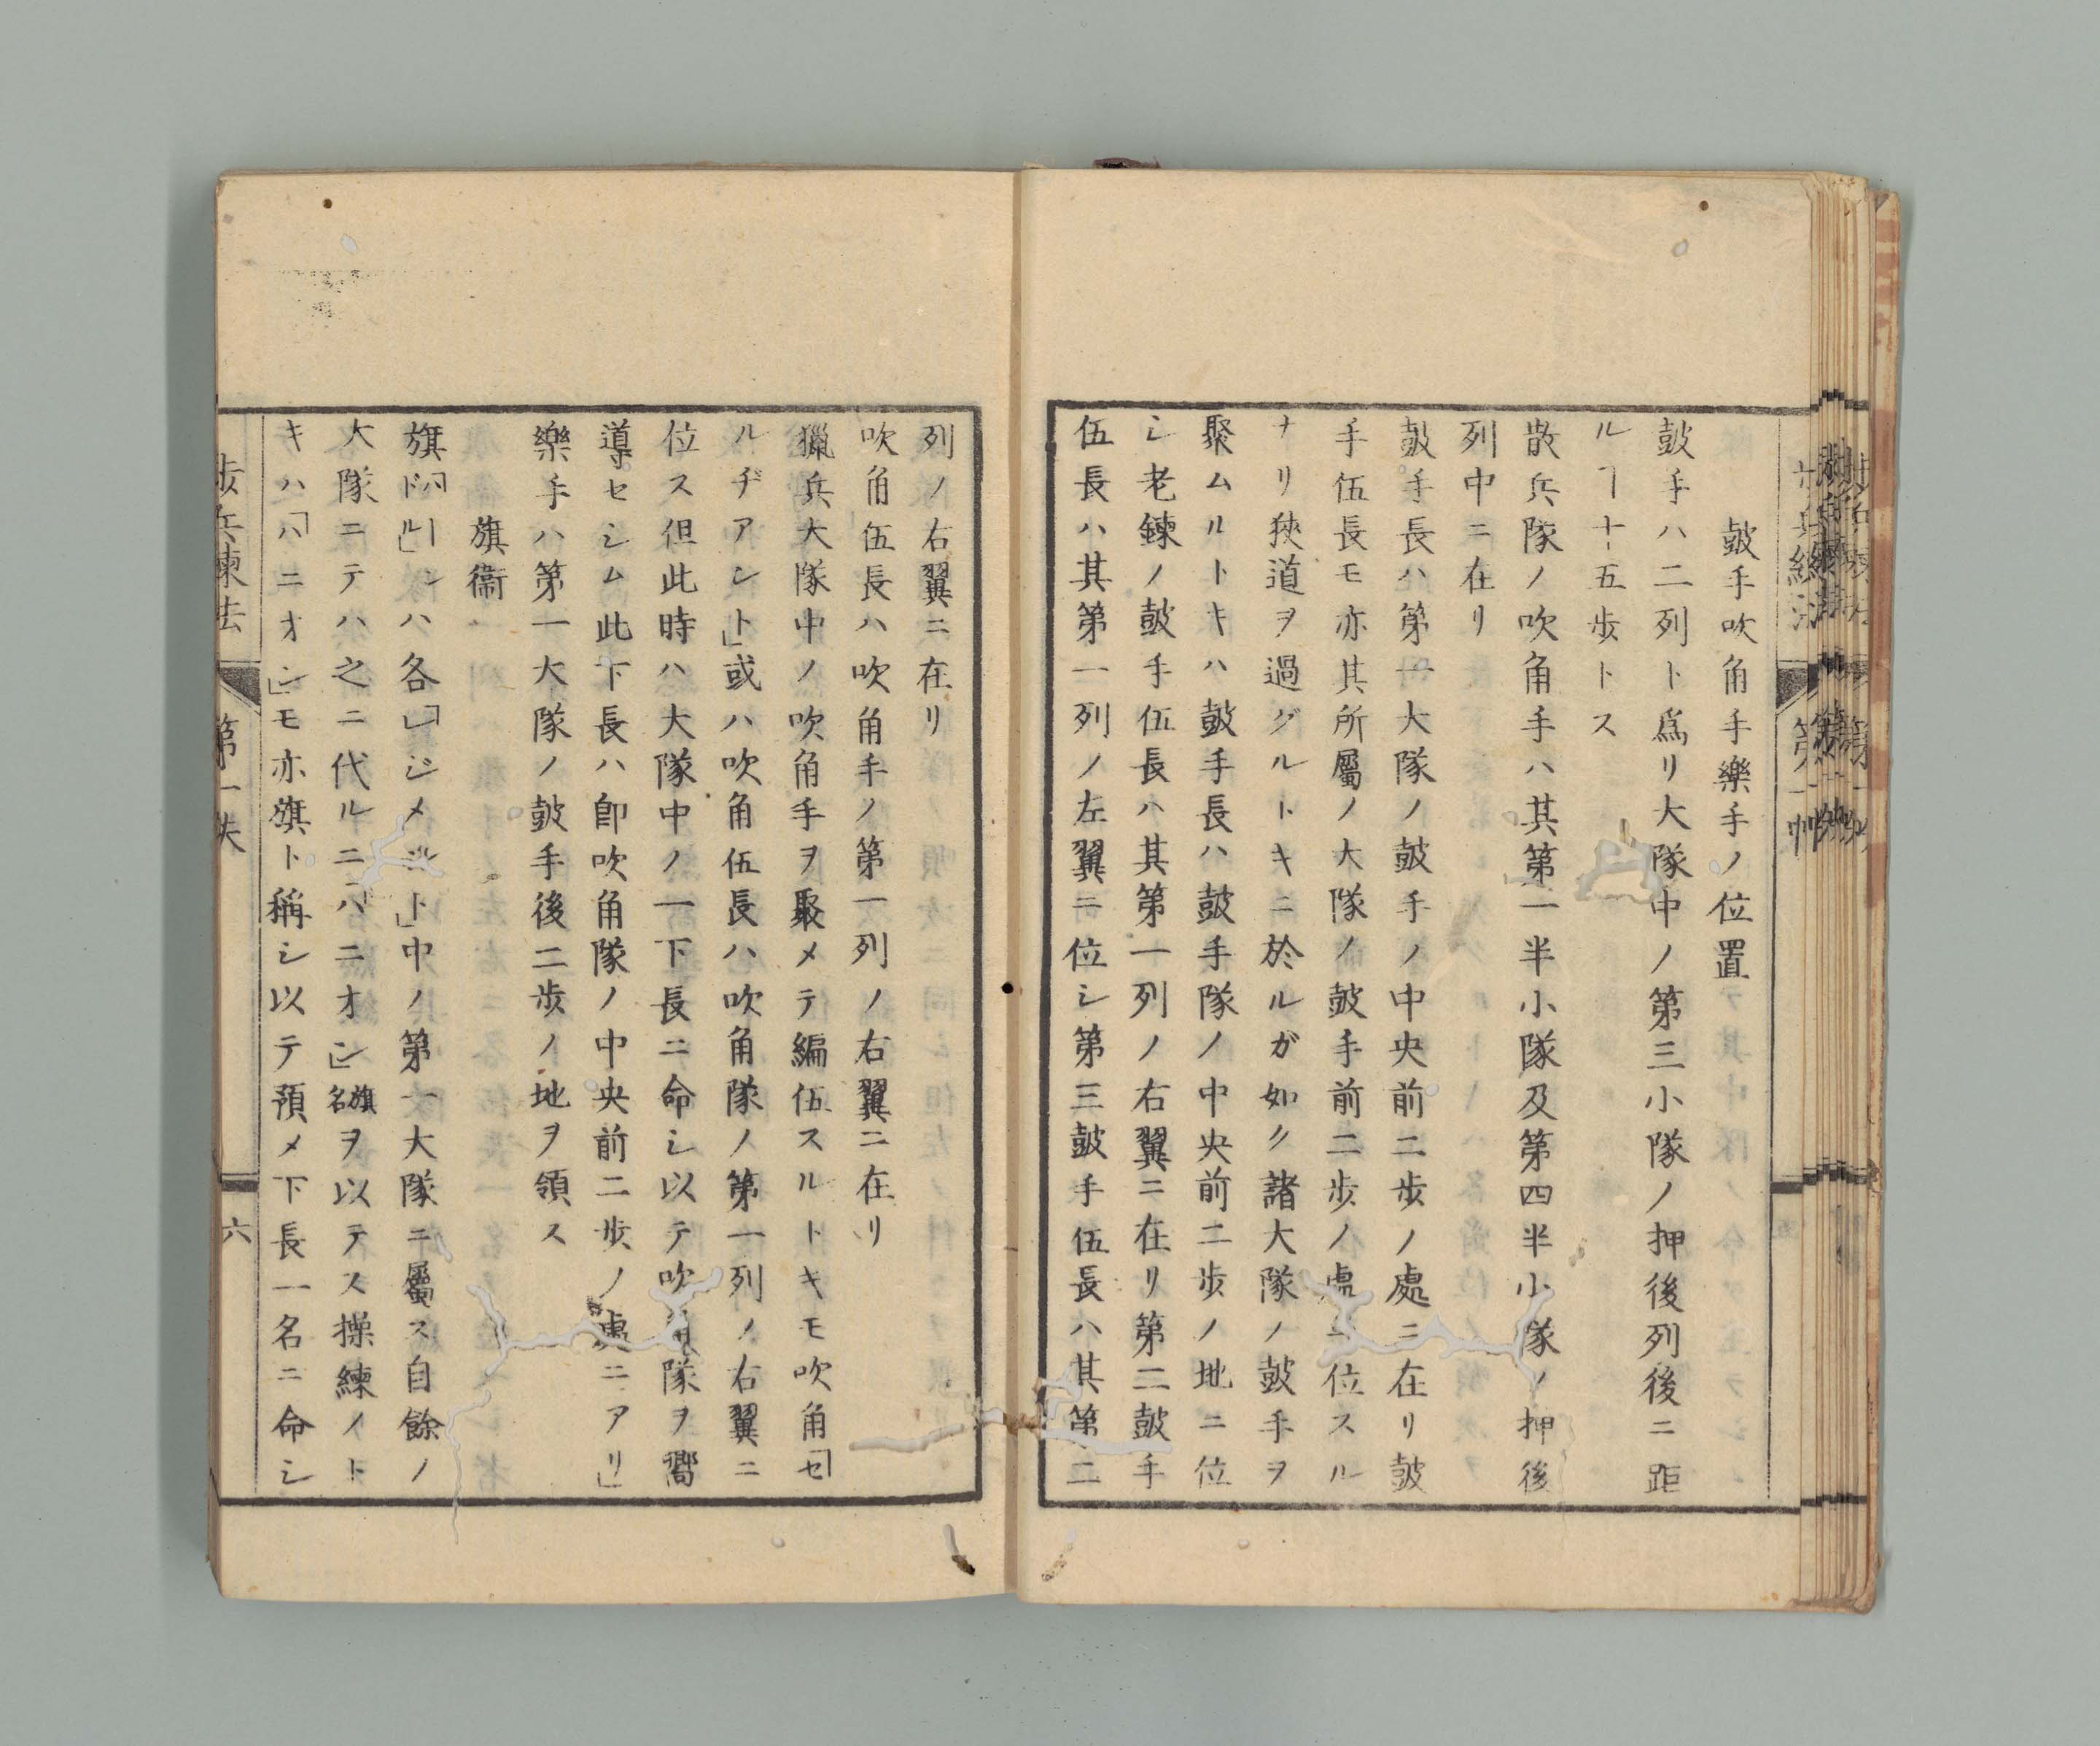 皷手吹角手樂手ノ位置
皷手ハ二列ト爲リ大隊中ノ第三小隊ノ押後列後ニ距
ルヿ十五歩トス
散兵隊ノ吹角手ハ其第一半小隊及第四半小隊ノ押後
列中ニ在リ
皷手長ハ第一大隊ノ皷手ノ中央前二歩ノ處ニ在リ皷
手伍長モ亦其所屬ノ大隊ノ皷手前二歩ノ處ニ位スル
ナリ狹道ヲ過グルトキニ於ルガ如ク諸大隊ノ皷手ヲ
聚ムルトキハ皷手長ハ皷手隊ノ中央前二歩ノ地ニ位
シ老鍊ノ皷手伍長ハ其第一列ノ右翼ニ在リ第二皷手
伍長ハ其第一列ノ左翼ニ位シ第三皷手伍長ハ其第二
列ノ右翼ニ在リ
吹角伍長ハ吹角手ノ第一列ノ右翼ニ在リ
獵兵大隊中ノ吹角手ヲ聚メテ編伍スルトキモ吹角「セ
ルヂアント」或ハ吹角伍長ハ吹角隊ノ第一列ノ右翼ニ
位ス但此時ハ大隊中ノ一下長ニ命シ以テ吹角隊ヲ嚮
導セシム此下長ハ卽吹角隊ノ中央前二歩ノ處ニアリ」
樂手ハ第一大隊ノ皷手後二歩ノ地ヲ領ス
旗衞
旗ハ各「レジメント」中ノ第一大隊ニ屬ス自餘ノ
大隊ニテハ之ニ代ルニ「ハニオン」旗名ヲ以テス操練ノト
キハ「ハニオン」モ亦旗ト稱シ以テ預メ下長一名ニ命シ
歩兵練法 第一帙 六